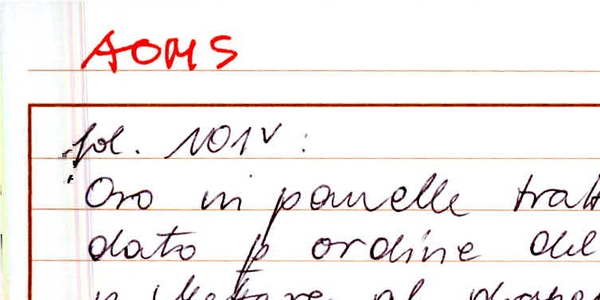 AOMS
fol. 101v:
Oro in panelle tratt
dato p ordine del
al